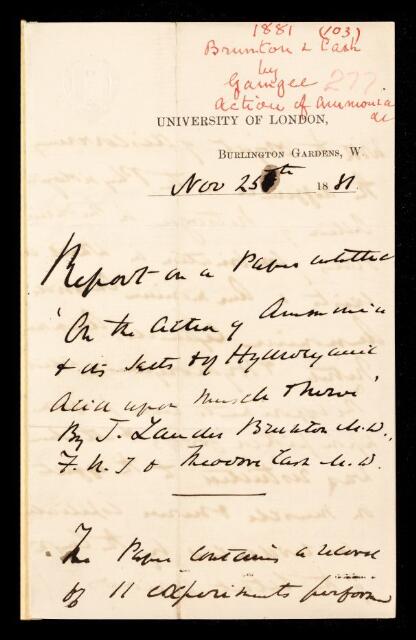 1881 (103)
Brunton & Cash
by
Gamgee 277
Action of Ammonia
&c
UNIVERSITY OF LONDON,
BURLINGTON GARDENS, W.
Nov 25th 1881.
Report on a Paper entitled
'On the Action of Ammonia
& its Salts & of Hydrocyanic
Acid upon Muscle & Nerve'
By T. Lauder Brunton M.D.,
F.R.S & Theodore Cash M.D.
The Paper contains a record
of 11 experiments perform